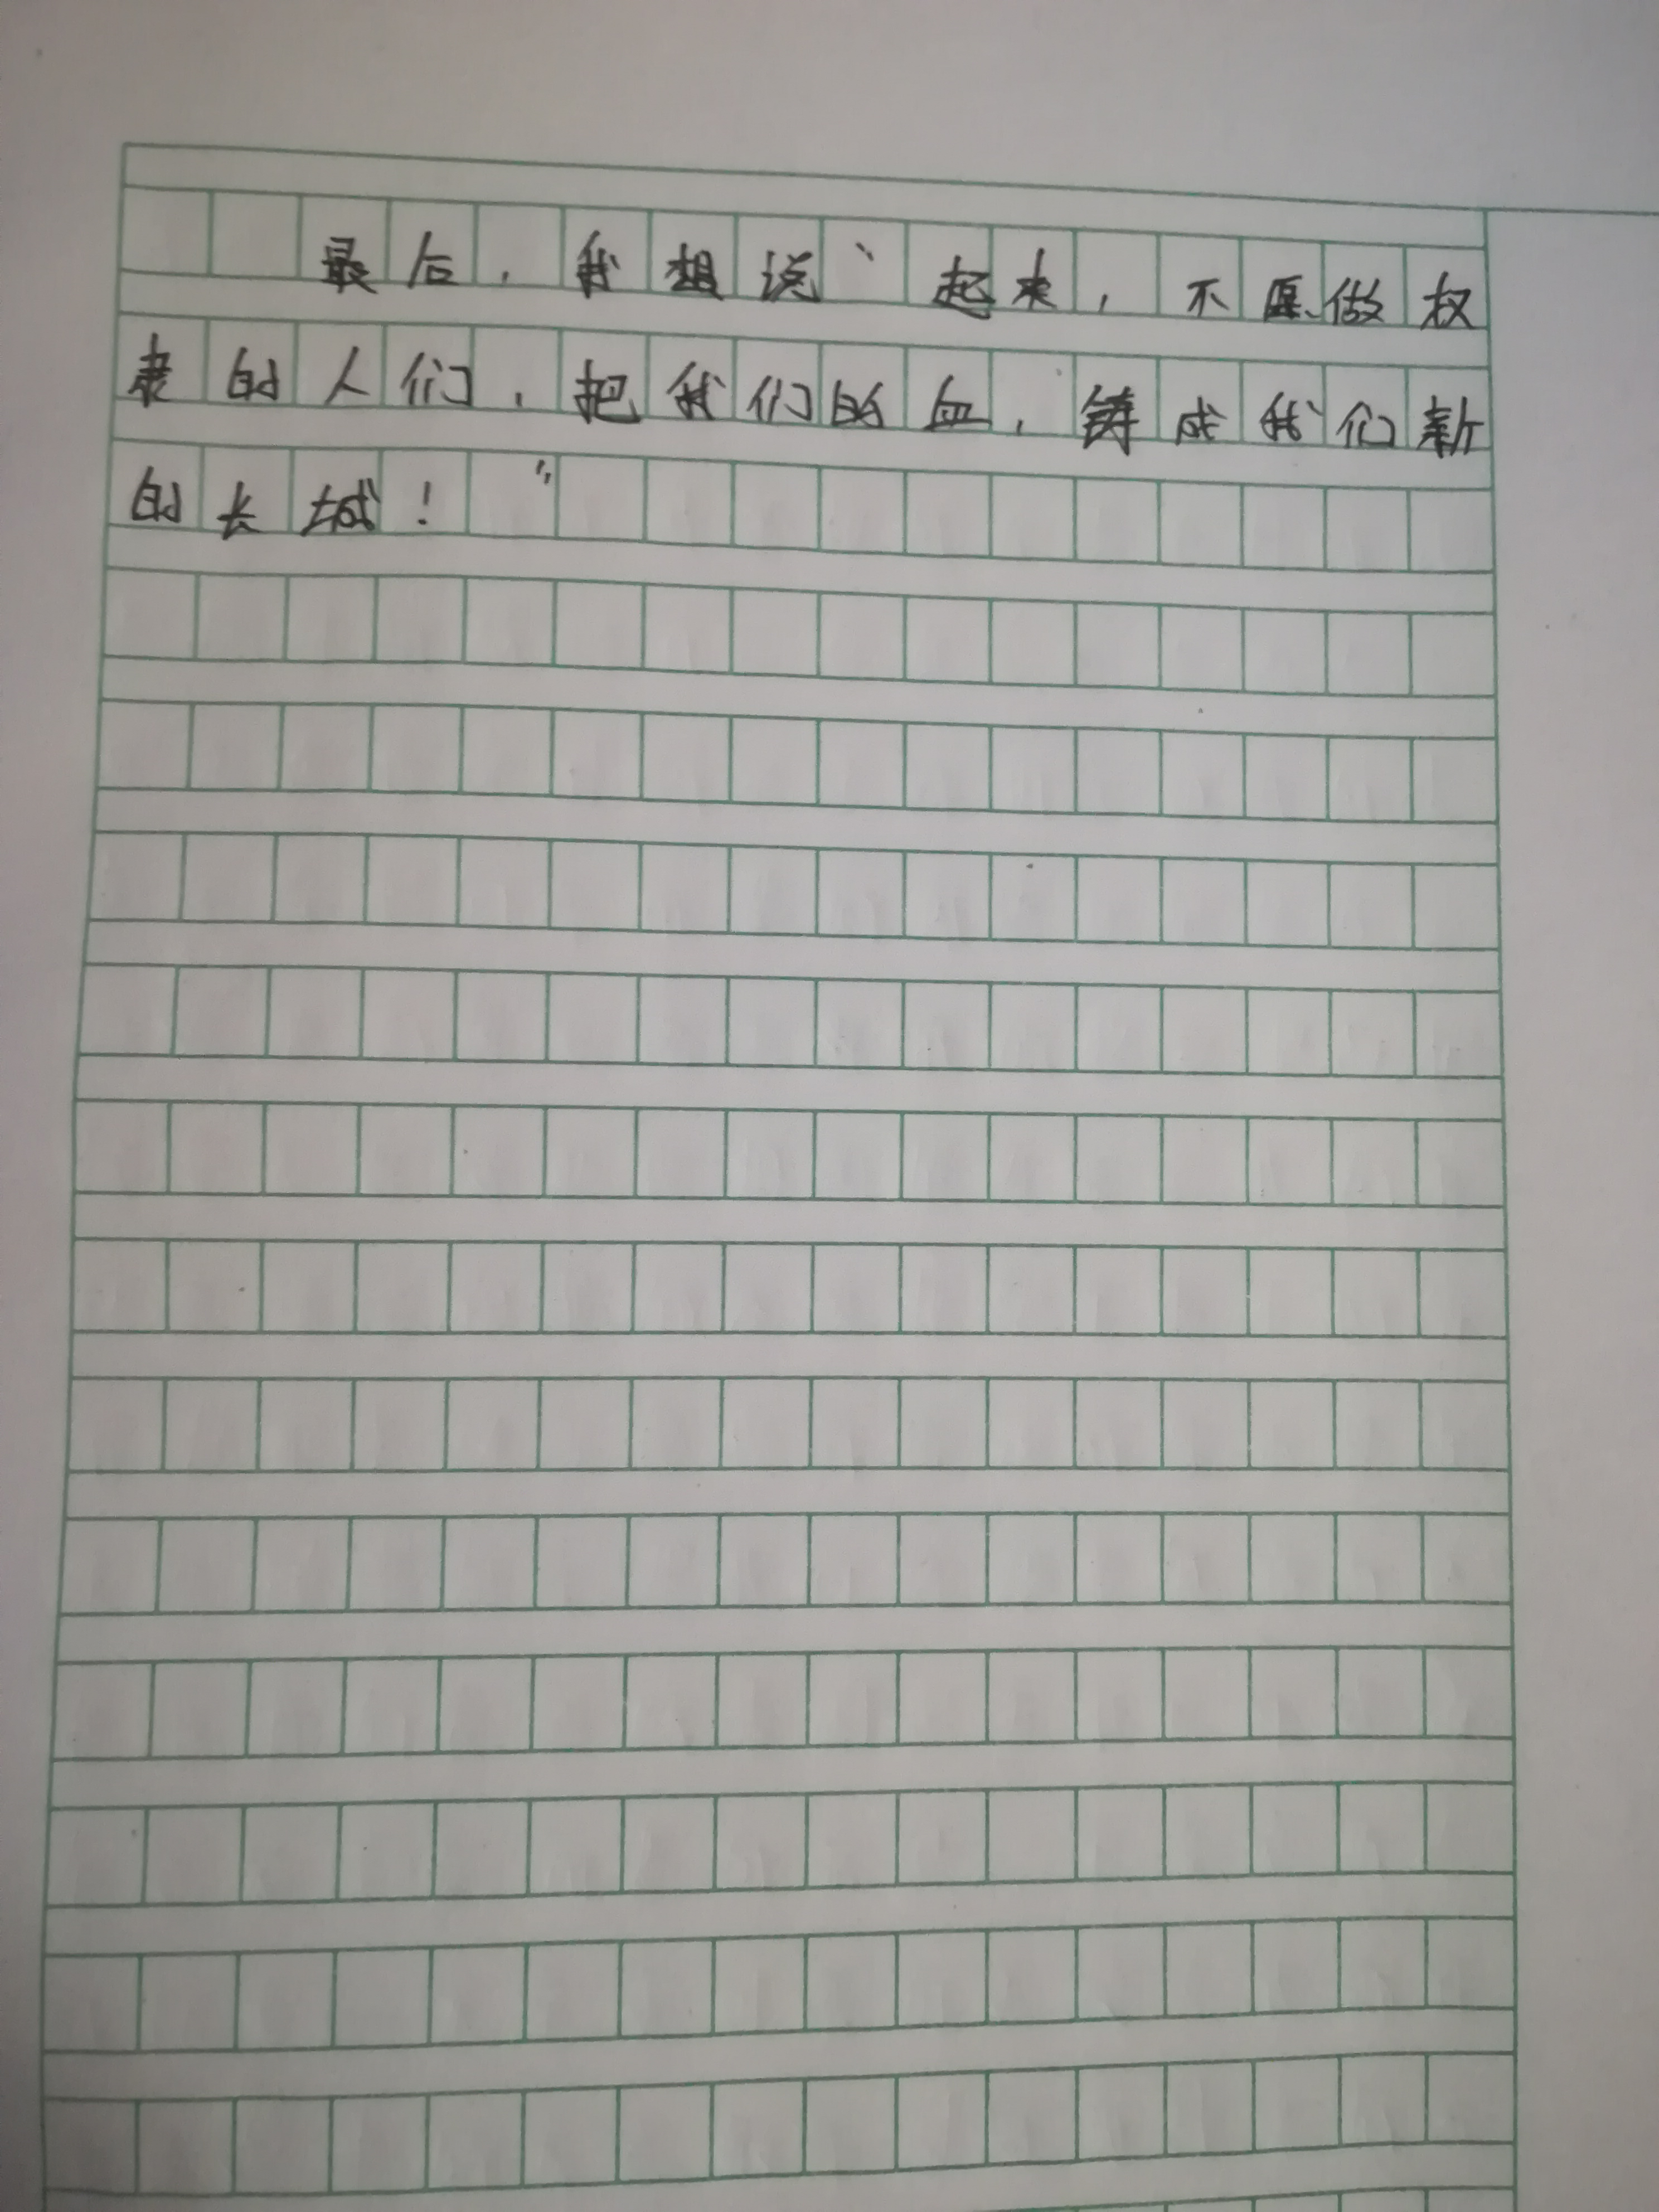 最后，我想说“起来，不愿做权
隶的人们，把我们的血，铸成我们新
的长城！”